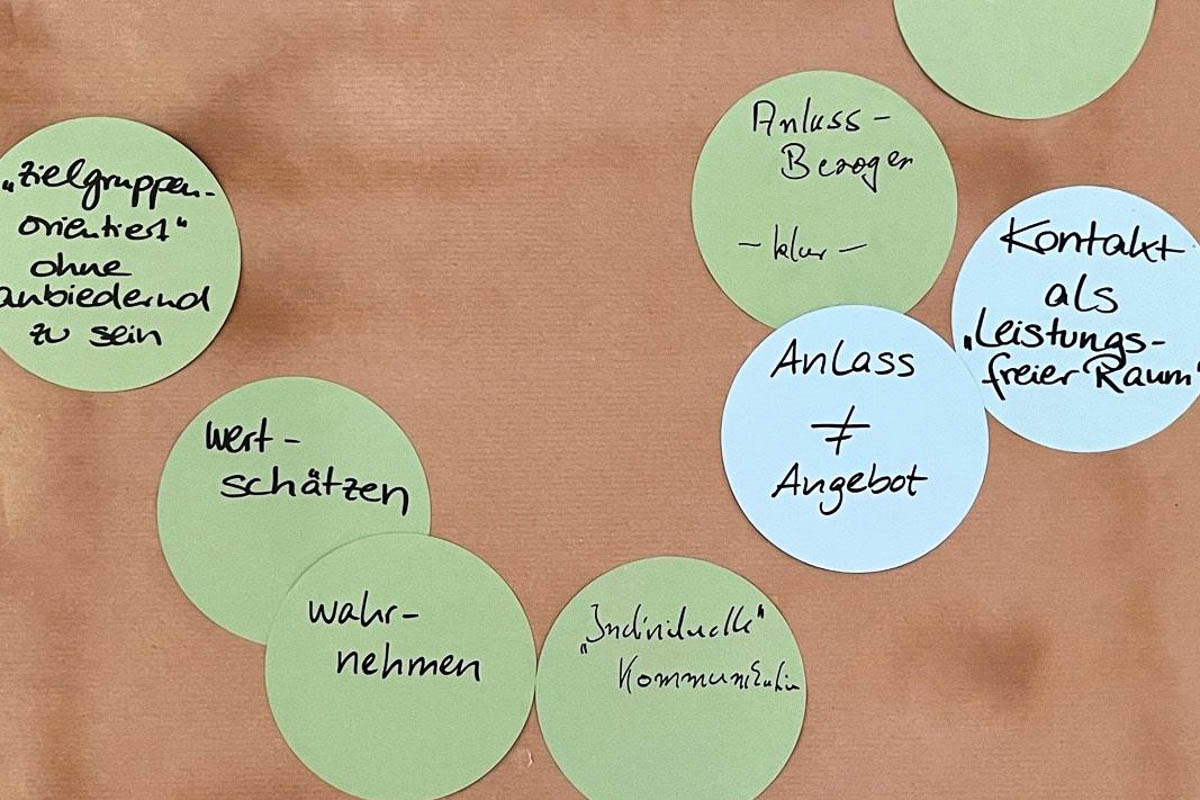 „Zielgruppen-
orientiert“
ohne
anbiedernd
zu sein
wert-
schätzen
wahr-
nehmen
„Individuelle“
Kommunikation
Anlass-
Bezogen
- klar -
Anlass
≠
Angebot
Kontakt
als
„Leistungs-
freier Raum“